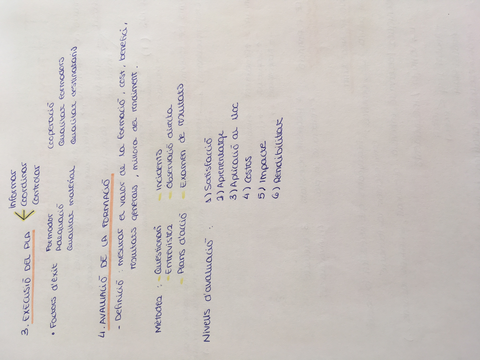 3. EXECUSIÓ DEL PLA
Informar
coordinar
controlar
• Factors d'Èxit
Formador
Adequació
Qualitat material
cooperació
Qualitat formadors
Qualitat destinataris
4. AVALUACIÓ DE LA FORMACIÓ
- Definició : mesurar el valor de la formació, cost, benefici,
resultats generals, millora del rendiment.
Mètodes : - Qüestionari
- Entrevistes
- Plans d'acció
- Incidents
- Observació directa
- Examen de resultats
Nivells d'avaluació :
1) Satisfacció
2) Aprenentatge
3) Aplicació al lloc
4) Costos
5) Impacte
6) Rentabilitat